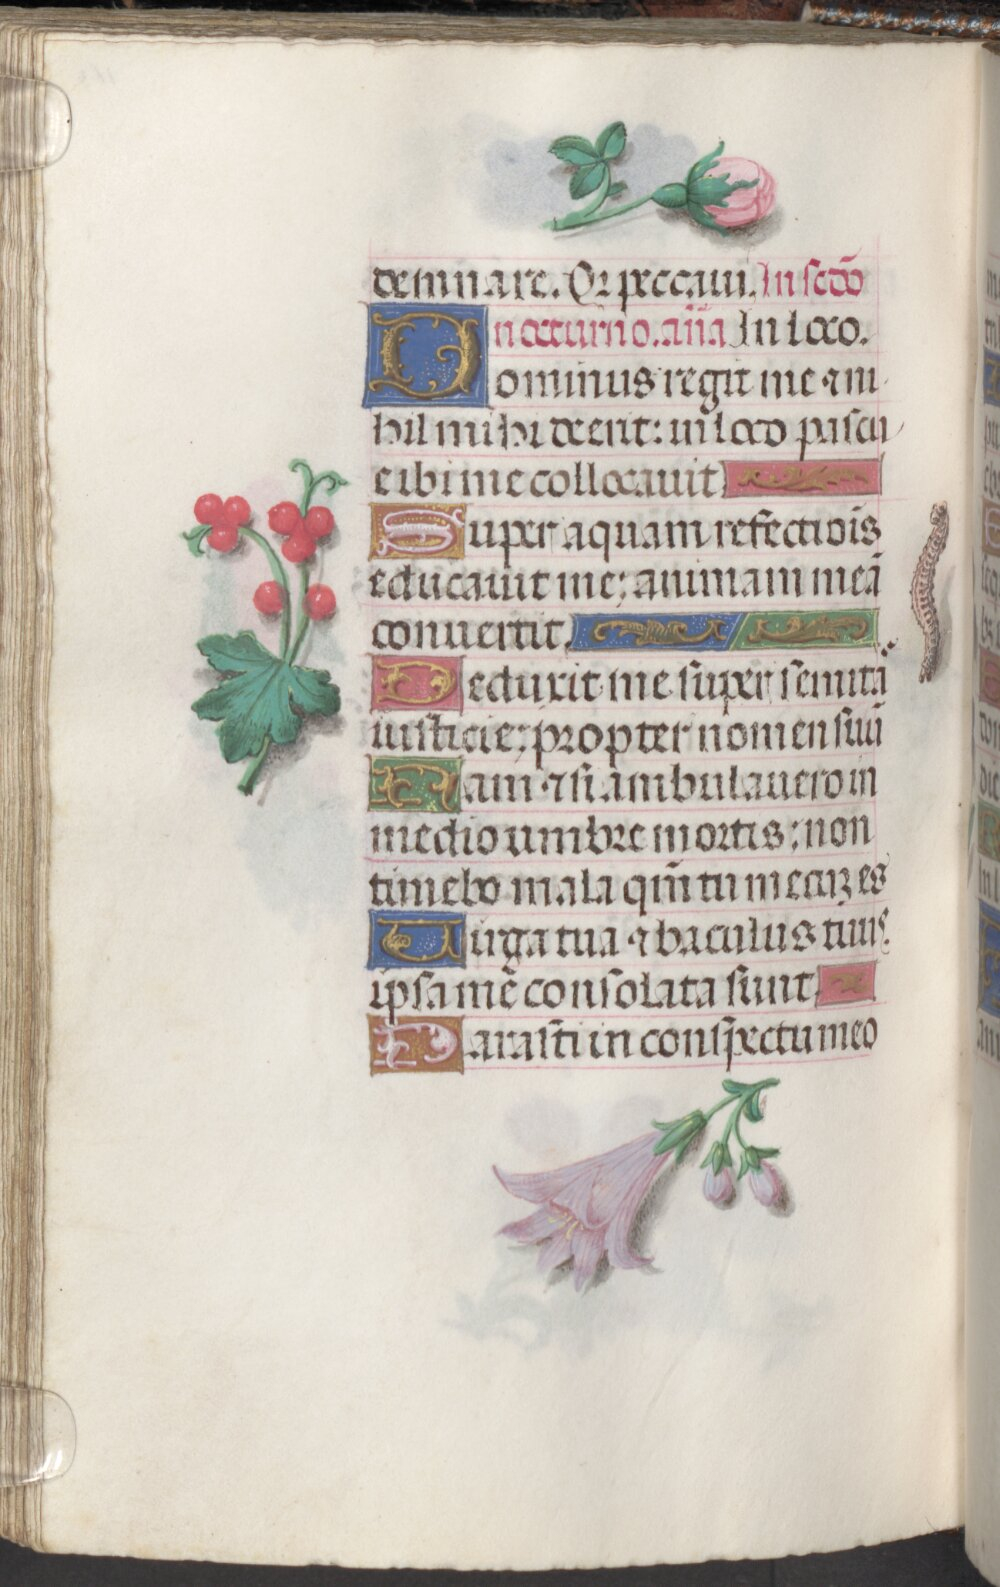 demnare. Qr peccaui. In scdō
nocturno. añā In loco.
Dominus regit me ⁊ ni
hil mihi deerit: in loco pascu
e ibi me collocauit
Super aquam refectiōis
educauit me; animam meā
conuertit.
Deduxit me super semitā
iusticie; propter nomen suū
Nam ⁊ si ambulauero in
medio umbre mortis; non
timebo mala qm̄ tu mecuꝫ es
Uirga tua ⁊ baculus tuus.
ipsa mē consolata sunt.
Parasti in conspectu meo